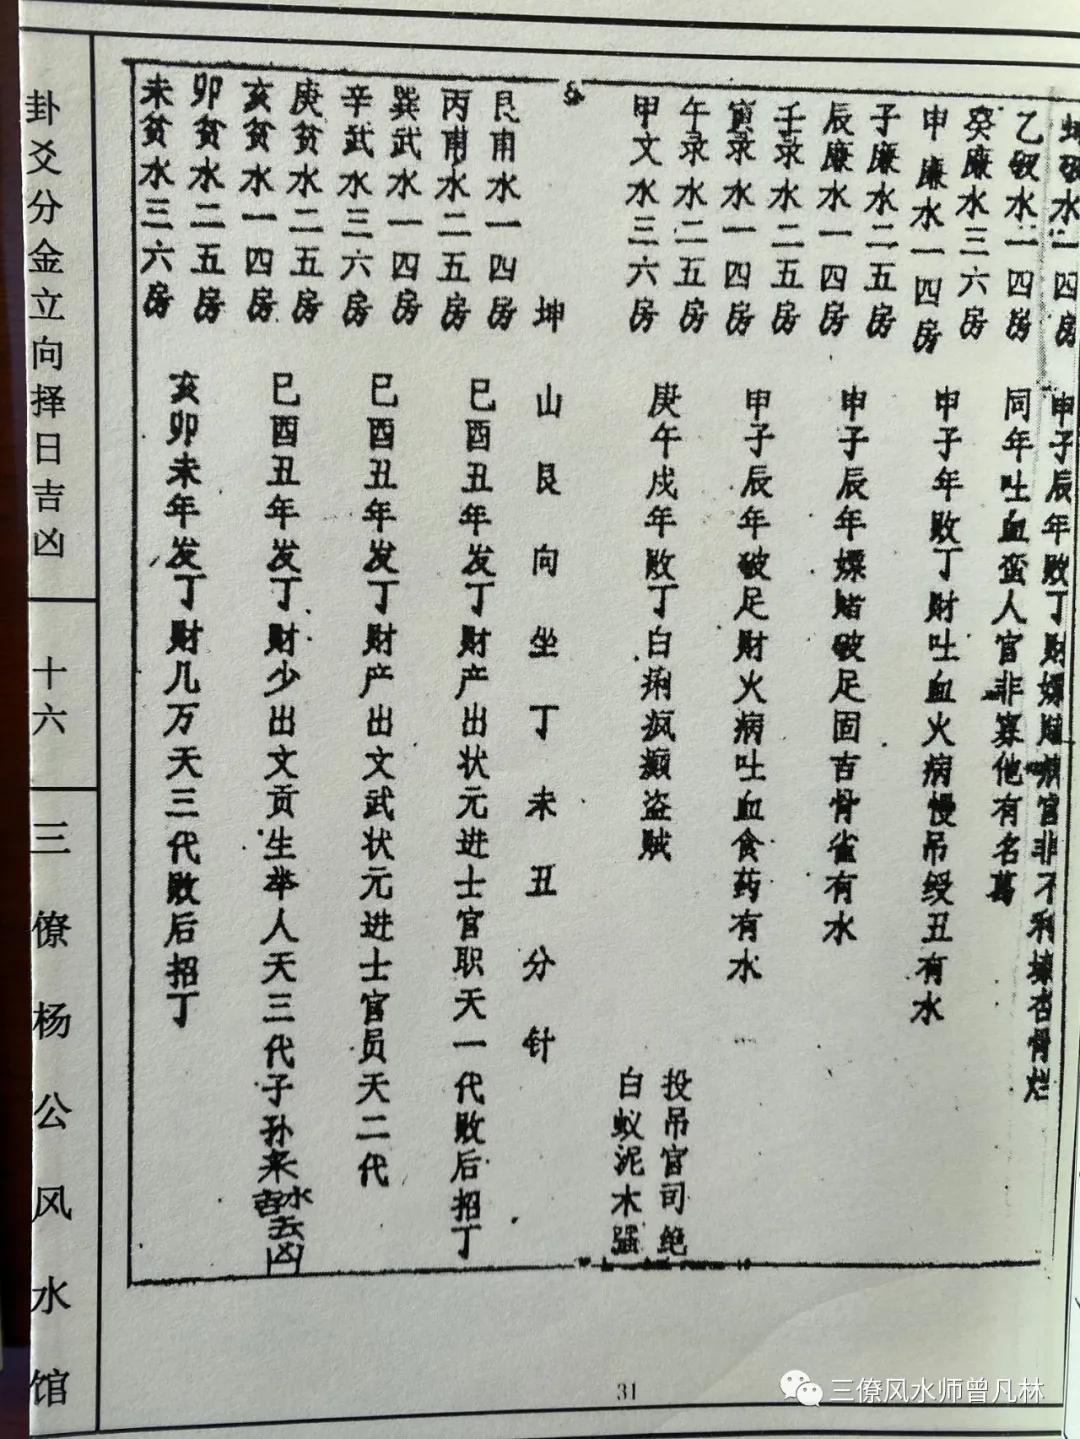 坤破水一四房
乙破水一四房
癸廉水三六房
申廉水一四房
子廉水二五房
辰廉水一四房
壬录水二五房
寅录水一四房
午录水二五房
甲文水三六房
申子辰年败丁财嫖赌病官非不利坟古骨烂
同年吐血蛮人官非寡他有名葛
申子年败丁财吐血火病慢吊绶丑有水
申子辰年嫖赌破足固古骨雀有水
甲子辰年破足财火病吐血食药有水
庚午戌年败丁白痢疯癫盗贼
投吊官司绝
白蚁泥木强
坤山艮向坐丁未丑分针
艮甫水一四房
丙甫水二五房
巽武水一四房
辛武水三六房
庚贫水二五房
亥贫水一四房
卯贫水二五房
未贫水三六房
巳酉丑年发丁财产出状元进士官职天一代败后招丁
巳酉丑年发丁财产出文武状元进士官员天二代
巳酉丑年发丁财少出文贡生举人天三代子孙来水吉去凶
亥卯未年发丁财几万天三代败后招丁
卦爻分金立向择日吉凶
十六
三僚杨公风水馆
31
三僚风水师曾凡林